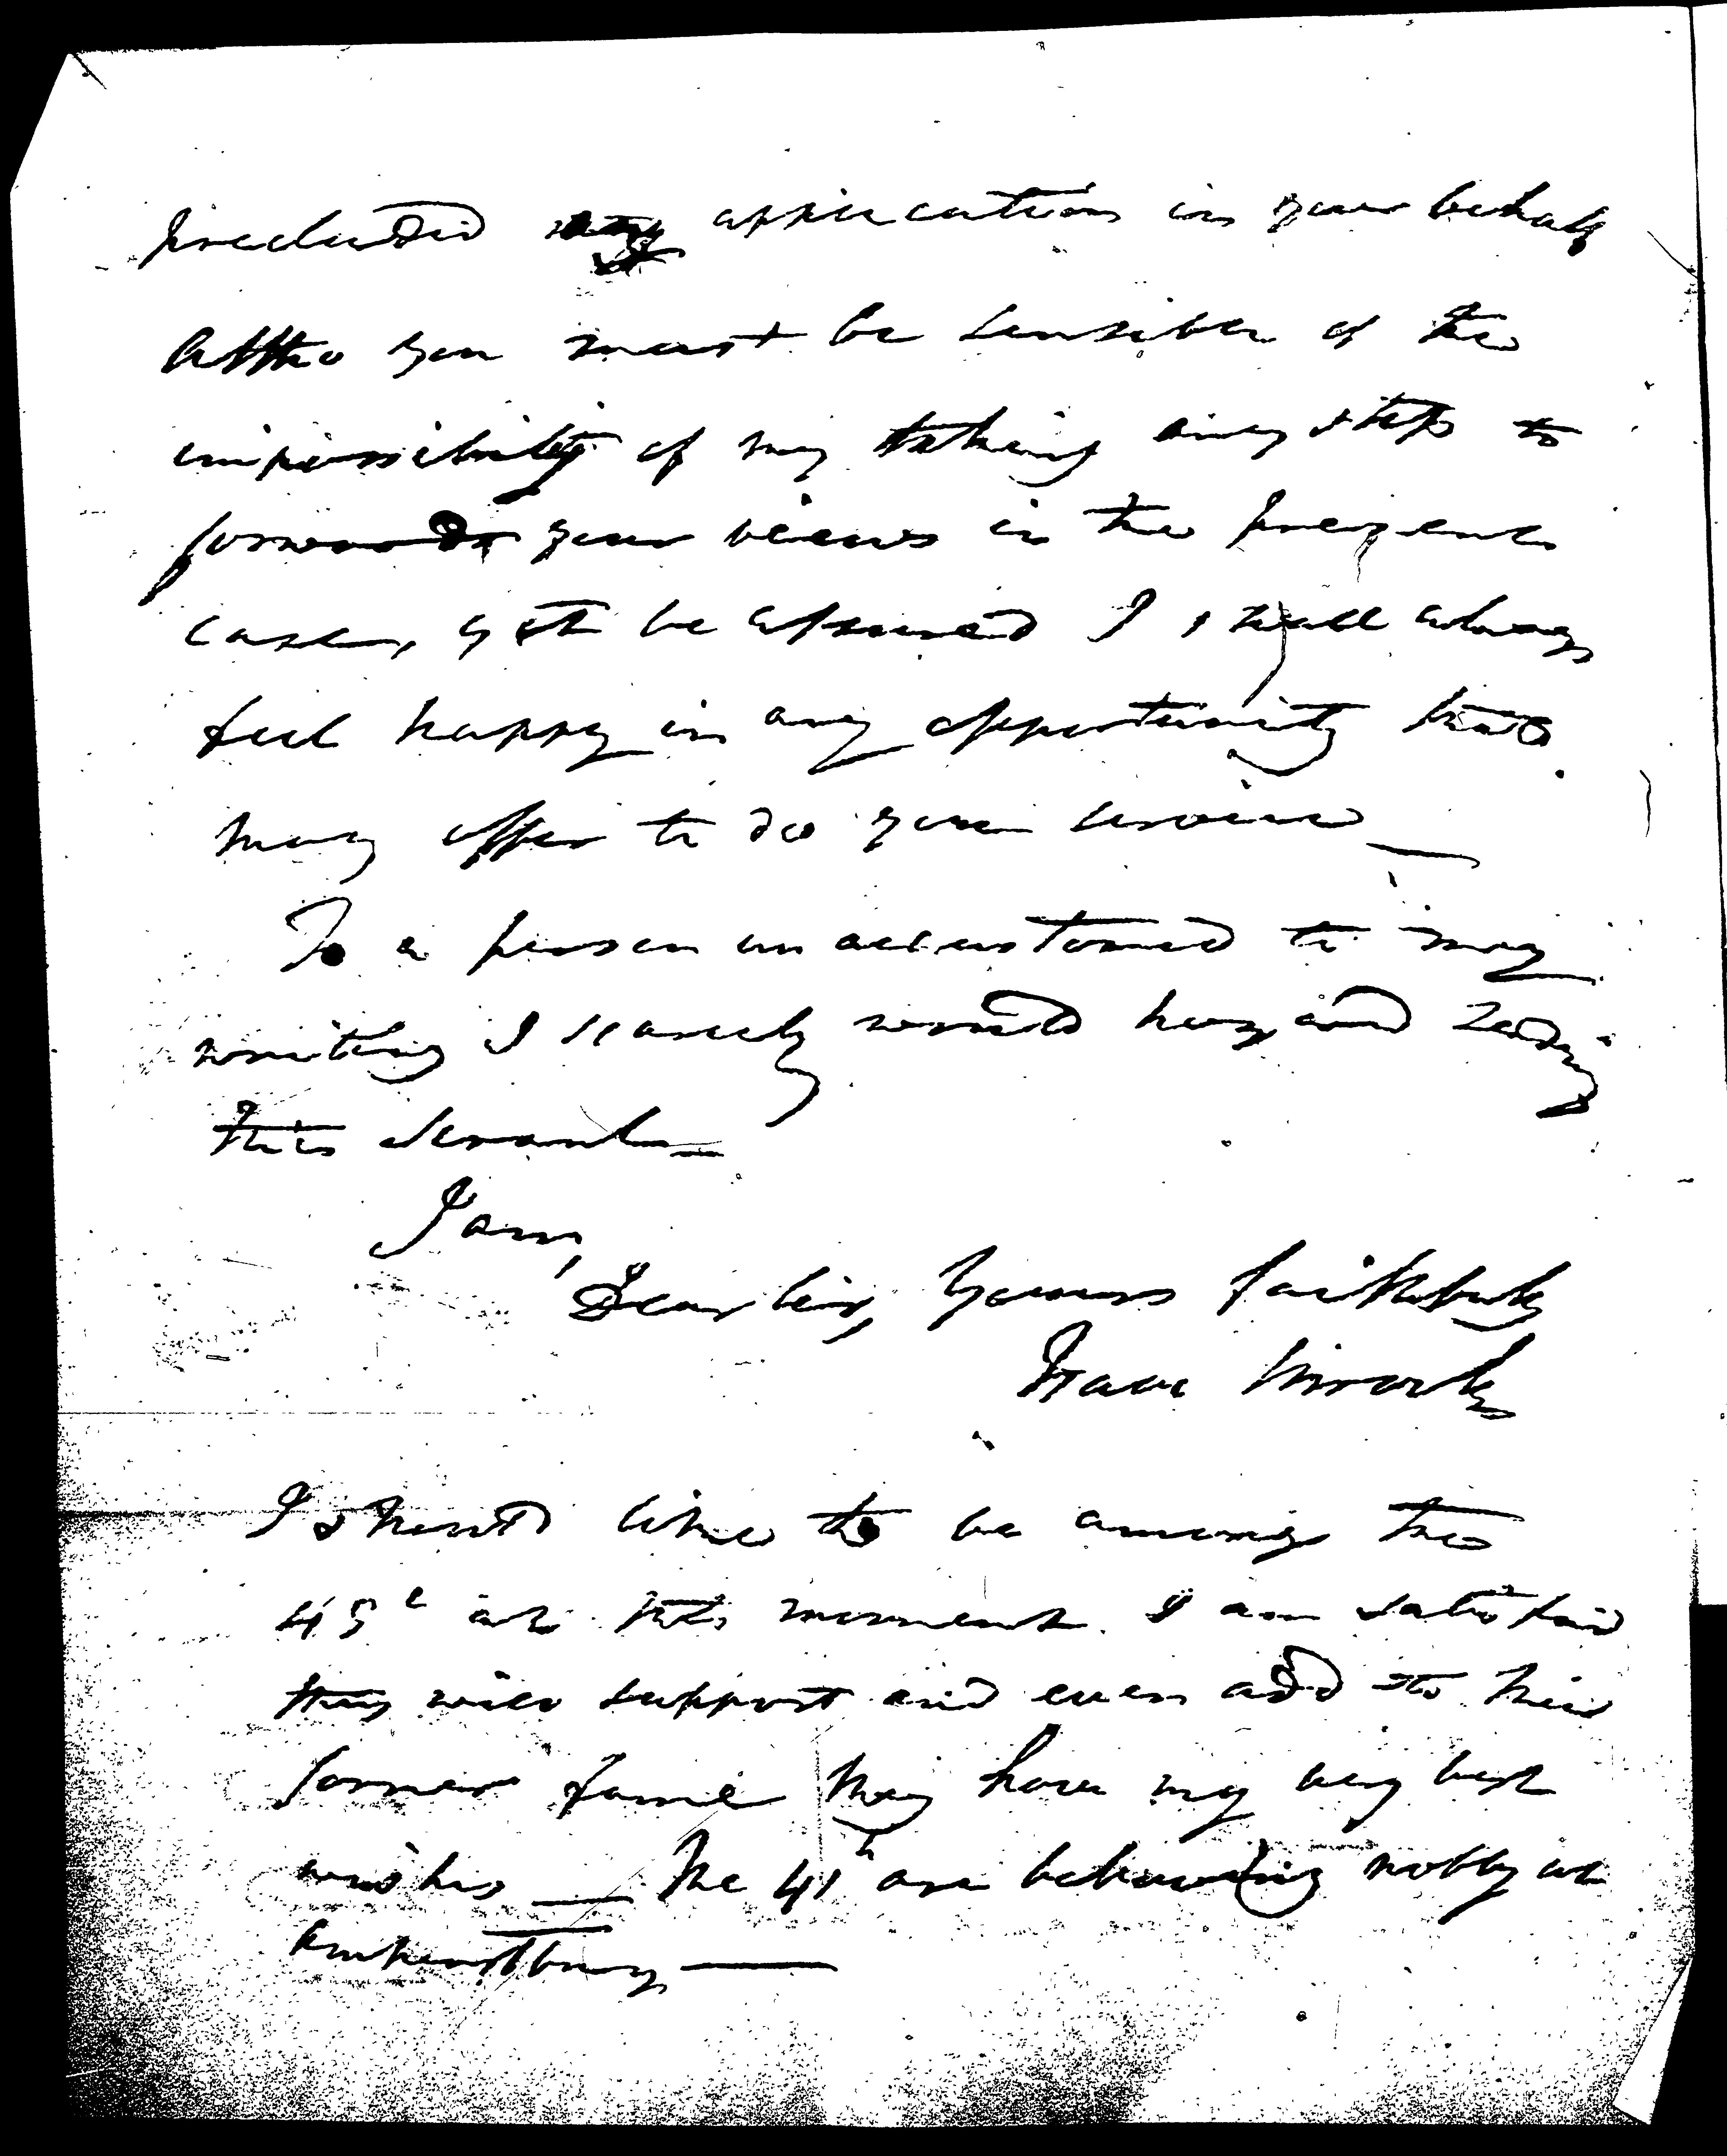 precluded any application in your behalf
Altho you must be sensible of the
impossibility of my taking any step to
forward your views in the present
case, yet be assured I shall always
feel happy in any opportunity that
may offer to do you service —
To a person unaccustomed to my
writing I scarcely would hazard sending
this scrawl —
I am,
Dear Sir, Yours faithfully
Isaac Brock
I should like to be among the
49t at this moment. I am satisfied
they will support and even add to their
former fame They have my very best
wishes — The 41t are behaving nobly at
Amherstburg —